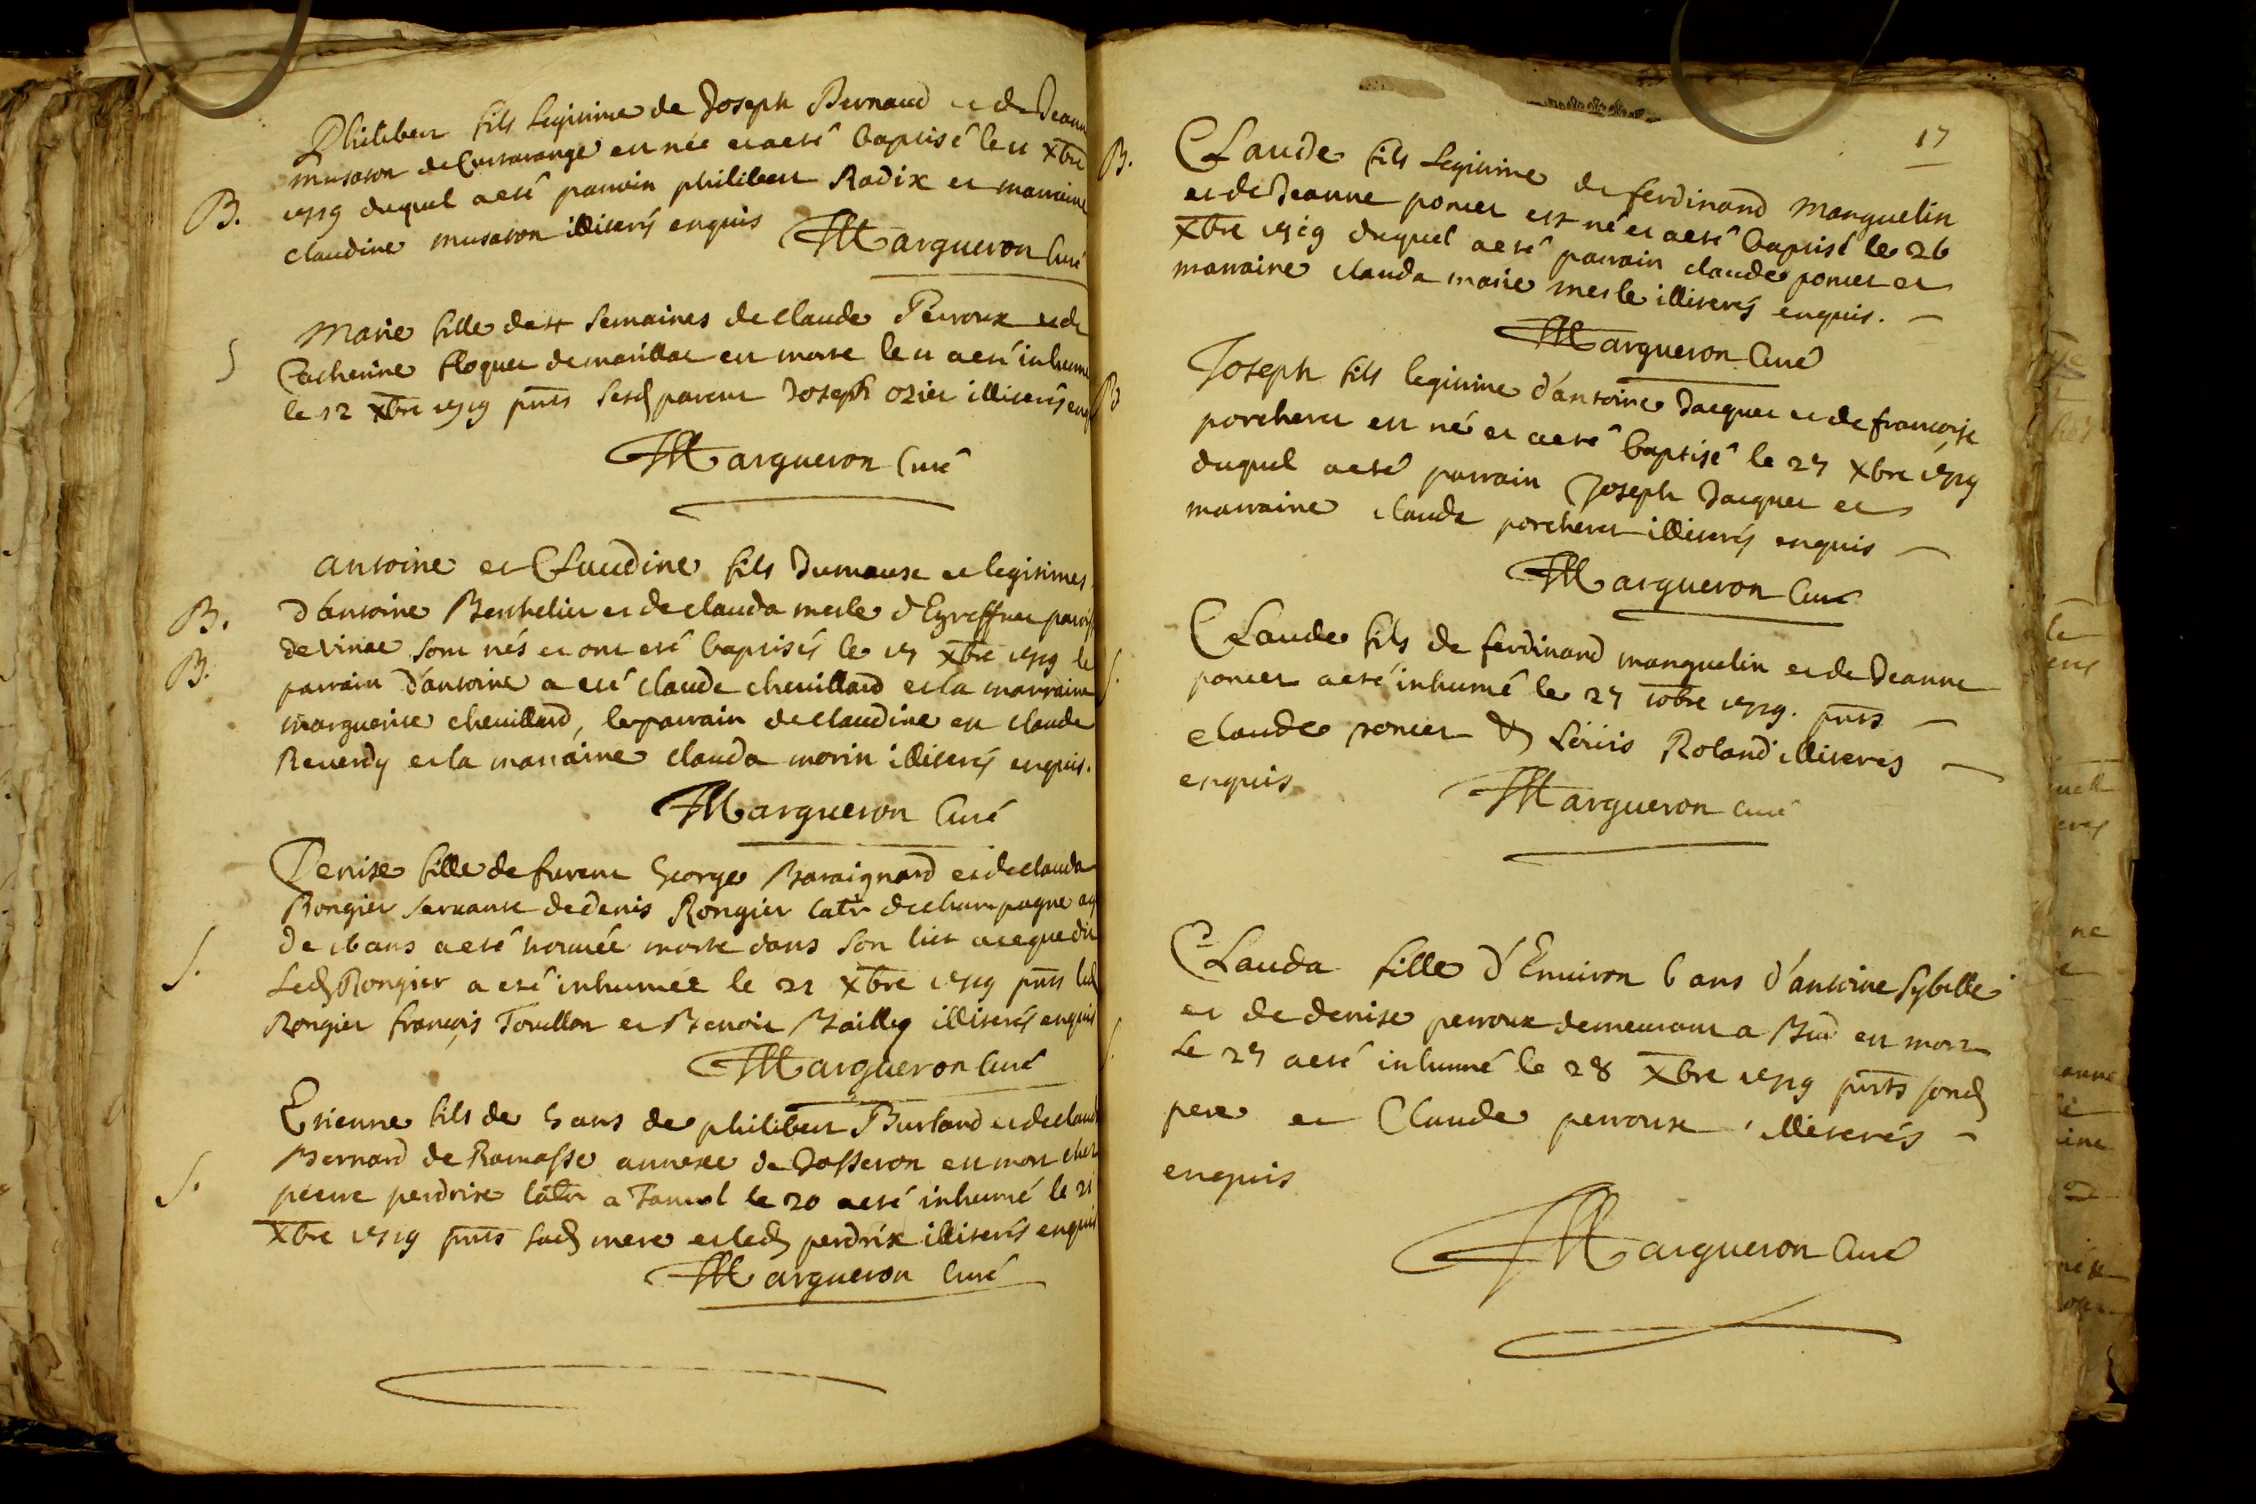 Philibert fils legitime de Joseph Bernaud et de Jeanne
musaton de est née et a eté baptisé le 11 xbre
1719 duquel a eté parrain philibert Radix et marraine
B. claudine musaton illiterés enquis Margueron Curé
Marie fille de 4 semaines de claude Perroux et de
S Catherine floquet de marillac est morte le 11 a eté inhumé
le 12 xbre 1719 pnts sesd parent Joseph ozier illiterés enq
Margueron Curé
antoine et Claudine fils Jumaux et legitimes
B. d'antoine Berthelier et de clauda merle d'Eyreffner paroisse
B. de vinae sont nés et ont eté baptisés le 17 xbre 1719 le
parrain d'antoine a eté claude chevillard et la marraine
marguerite chevillard, le parrain de claudine est claude
Reverdy et la marraine clauda morin illiterés enquis.
Margueron Curé
Denise fille de furent George Baraignard et de clauda
Rongier servante de denis Rongier latr de champagne ag
de 16 ans a eté trouvée morte dans son lict a ce que dit
S. Led Rongier a eté inhumée le 21 xbre 1719 pnts led
Rongier françois Torillon et Benoit Bailly illiterés enquis
Margueron Curé
Etienne fils de 5 ans de philibert Burtand et de claud
Bernard de Ramasse annexee de Josseron est mort chez
S. pierre perdrise latr a Taniol le 20 a eté inhumé le 21
xbre 1719 pnts sad mere et led perdrix illiterés enquis
Margueron Curé
17
B. Claude fils Legitime de ferdinand Manguelin
et de Jeanne poncet est né et a eté baptisé le 26
xbre 1719 duquel a eté parrain claude poncet et
marraine clauda marie merle illiterés enquis.
Margueron Curé
B Joseph fils legitime d'antoine Jacquet et de françoise
porcheret est né et a eté baptisé le 27 xbre 1719
duquel a eté parrain Joseph Jacquet et
marraine clauda porcheret illiterés enquis
Margueron Curé
Claude fils de ferdinand manguelin et de Jeanne
S. poncet a eté inhumé le 27 xbre 1719. pnts
claude poncet & Loüis Roland illiterés
enquis
Margueron Curé
Clauda fille d'Environ 6 ans d'antoine Sybille
et de denise perroux demeurant a est mort
le 27 a eté inhumé le 28 xbre 1719 pnts sond
pere et Claude perroux illiterés
enquis
Margueron Curé